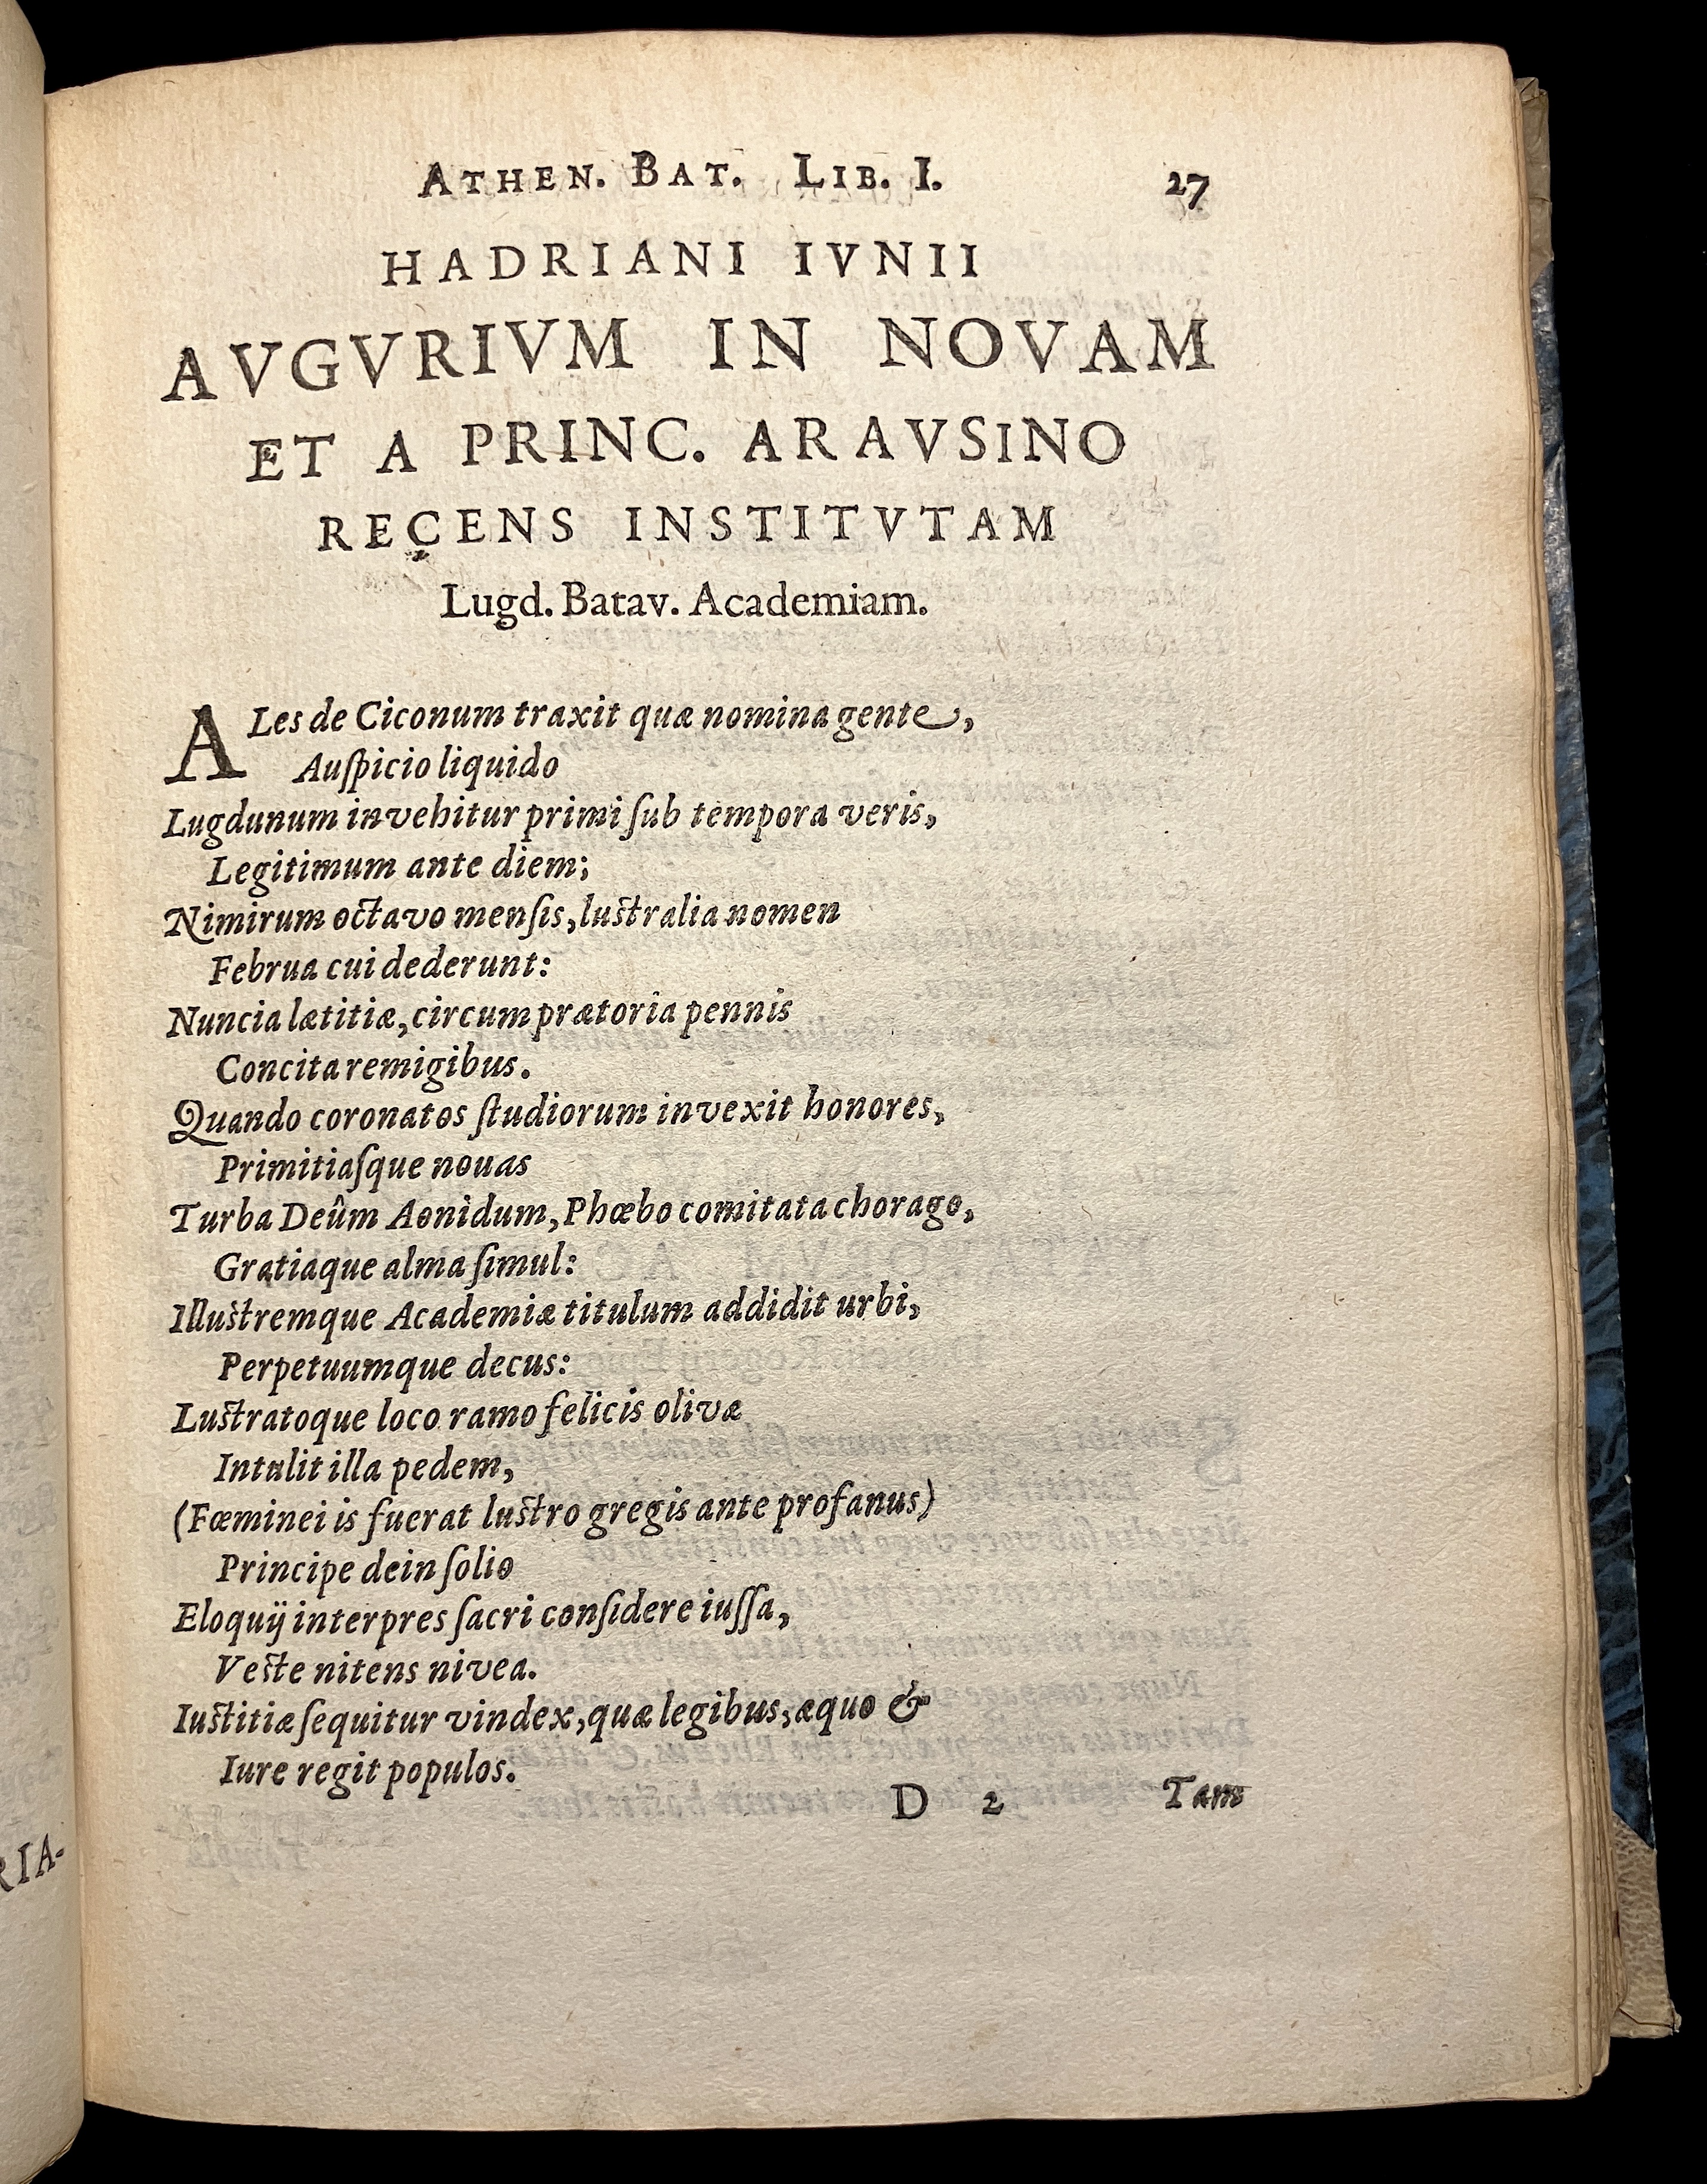 ATHEN. BAT. LIB. I. 27
HADRIANI IVNII
AVGVRIVM IN NOVAM
ET A PRINC. ARAVSINO
RECENS INSTITVTAM
Lugd. Batav. Academiam.
ALes de Ciconum traxit quæ nomina gente,
Auſpicio liquido
Lugdunum invehitur primi ſub tempora veris,
Legitimum ante diem;
Nimirum octavo menſis, luſtralia nomen
Februa cui dederunt:
Nuncia lætitiæ, circum prætoria pennis
Concita remigibus.
Quando coronatos ſtudiorum invexit honores,
Primitiaſque nouas
Turba Deûm Aonidum, Phœbo comitata chorago,
Gratiaque alma ſimul:
Illuſtremque Academiæ titulum addidit urbi,
Perpetuumque decus:
Luſtratoque loco ramo felicis olivæ
Intulit illa pedem,
(Fœminei is fuerat luſtro gregis ante profanus)
Principe dein ſolio
Eloquij interpres ſacri conſidere iuſſa,
Veſte nitens nivea.
Iuſtitiæ ſequitur vindex, quæ legibus, æquo &
Iure regit populos.
D 2 Tam
RIA-